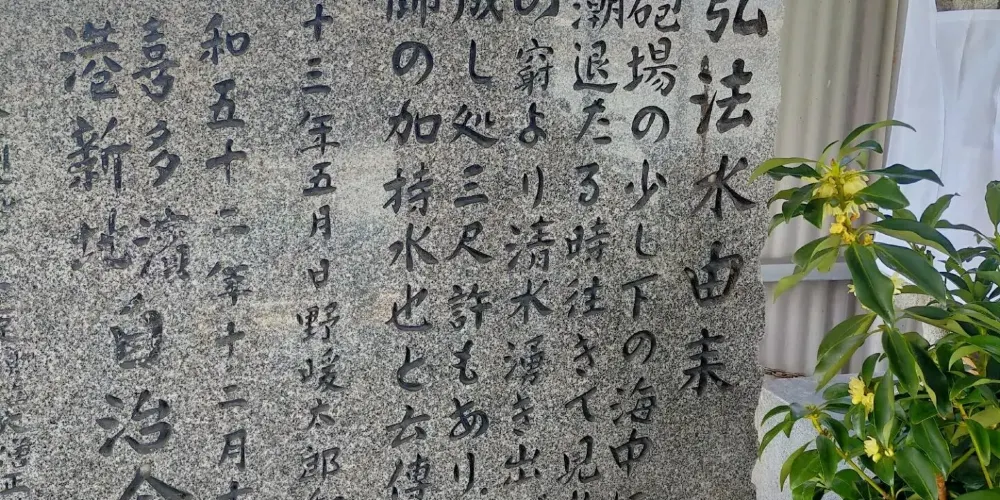 弘法水由来
砲場の少し下の海中に
潮退たる時往きて見
の窮より清水湧き出
成し処三尺許もあり
師の加持水也と云傳
十三年五月日野暖太郎
和五十二年十二月
喜多濱自治会
港新地